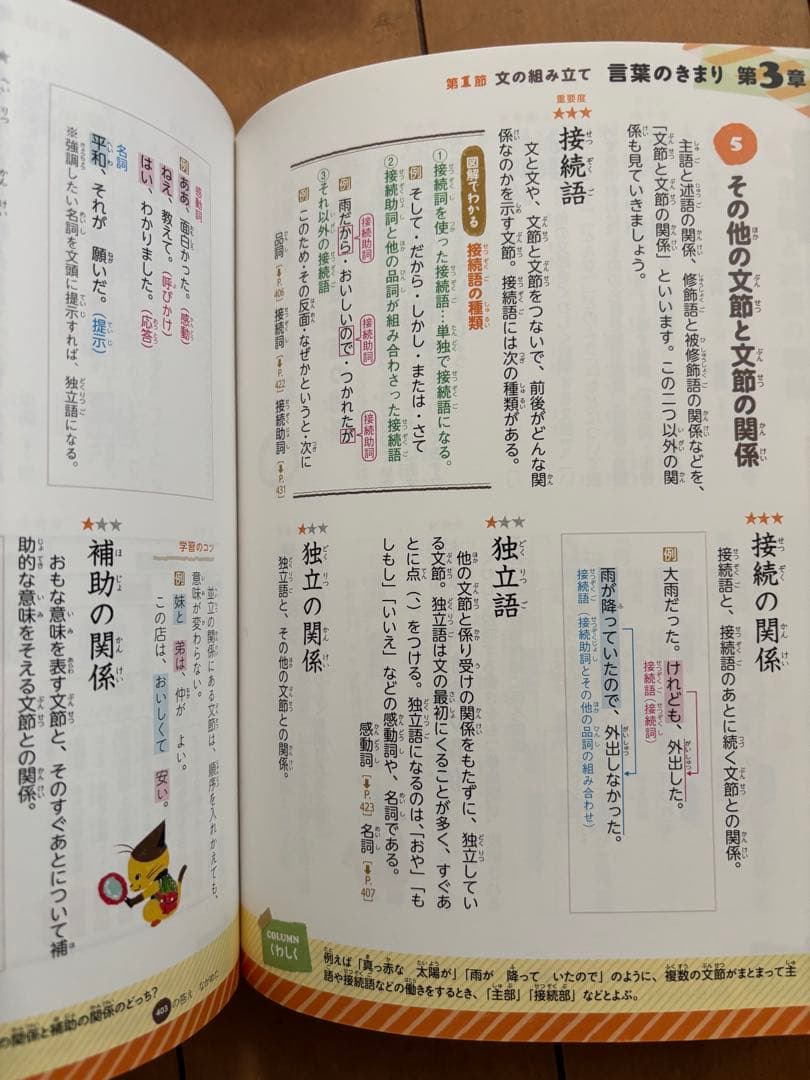 第1節 文の組み立て 言葉のきまり 第3章
5 その他の文節と文節の関係
主語と述語の関係、修飾語と被修飾語の関係などを、
「文節と文節の関係」といいます。この二つ以外の関
係も見ていきましょう。
重要度
★★★
接続語
文と文や、文節と文節をつないで、前後がどんな関
係なのかを示す文節。接続語には次の種類がある。
図解でわかる 接続語の種類
①接続詞を使った接続語…単独で接続語になる。
例 そして・だから・しかし・または・さて
②接続助詞と他の品詞が組み合わさった接続語
例 雨だから・おいしいので・つかれたが
接続助詞 接続助詞 接続助詞
③それ以外の接続語
例 このため・その反面・なぜかというと・次に
品詞[➡P.406] 接続詞[➡P.422] 接続助詞[➡P.431]
★★★
接続の関係
接続語と、接続語のあとに続く文節との関係。
例 大雨だった。けれども、外出した。
接続語(接続詞)
雨が降っていたので、外出しなかった。
接続語(接続助詞とその他の品詞の組み合わせ)
★★★
独立語
他の文節と係り受けの関係をもたずに、独立してい
る文節。独立語は文の最初にくることが多く、すぐあ
とに点(、)をつける。独立語になるのは、「おや」「も
しもし」「いいえ」などの感動詞や、名詞である。
感動詞[➡P.423] 名詞[➡P.407]
★★★
独立の関係
独立語と、その他の文節との関係。
COLUMN
くわしく
例えば「真っ赤な 太陽が」「雨が 降って いたので」のように、複数の文節がまとまって主
語や接続語などの働きをするとき、「主部」「接続部」などとよぶ。
感動詞
例 ああ、面白かった。(感動)
ねえ、教えて。(呼びかけ)
はい、わかりました。(応答)
名詞
平和、それが 願いだ。(提示)
※強調したい名詞を文頭に提示すれば、独立語になる。
学習のコツ
並立の関係にある文節は、順序を入れかえても、
意味が変わらない。
例 妹と 弟は、仲が よい。
この店は、おいしくて 安い。
★★★
補助の関係
おもな意味を表す文節と、そのすぐあとについて補
助的な意味をそえる文節との関係。
の関係と補助の関係のどっち?
403の答え ながめた